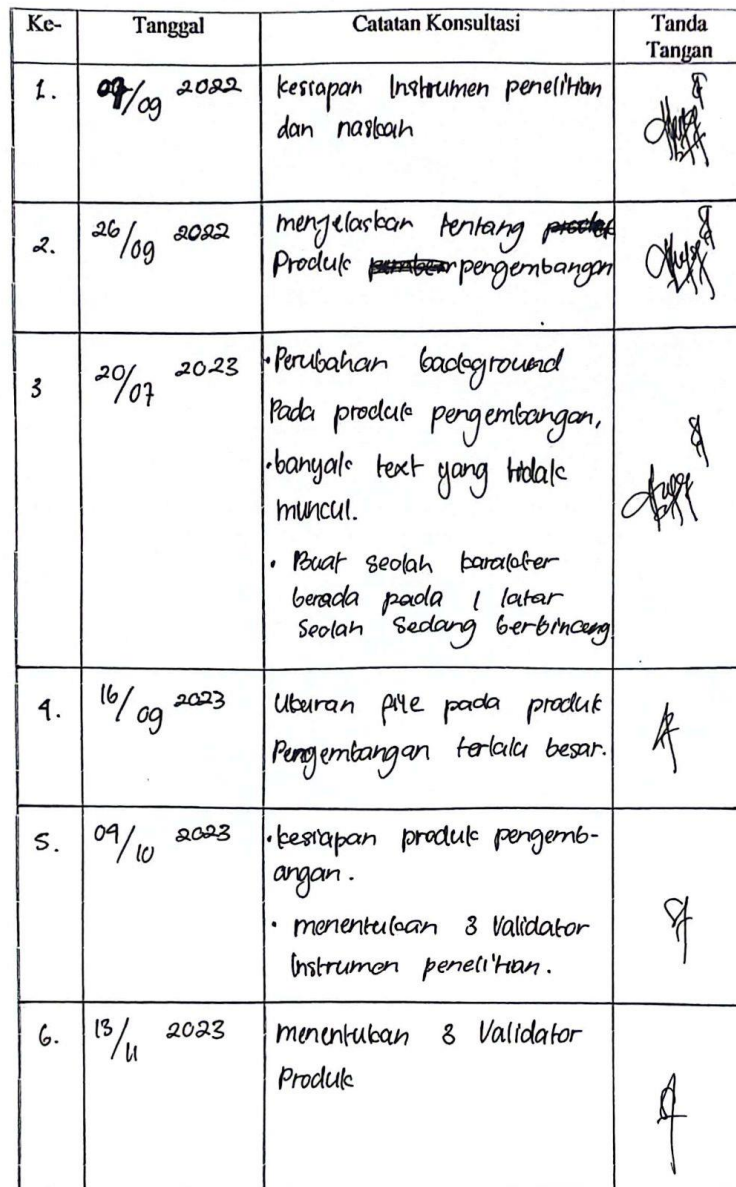 Ke- Tanggal Catatan Konsultasi Tanda Tangan
1. 09/09 2022 kesiapan Instrumen penelitian
dan naskah
2. 26/09 2022 menjelaskan tentang
Produk pengembangan
3 20/07 2023 • Perubahan background
Pada produk pengembangan,
• banyak text yang tidak
muncul.
• Buat seolah karakter
berada pada 1 latar
Seolah Sedang berbincang
4. 16/09 2023 Ukuran file pada produk
Pengembangan terlalu besar.
5. 09/10 2023 • kesiapan produk pengemb-
angan.
• menentukan 3 Validator
Instrumen penelitian.
6. 13/11 2023 menentukan 3 Validator
Produk